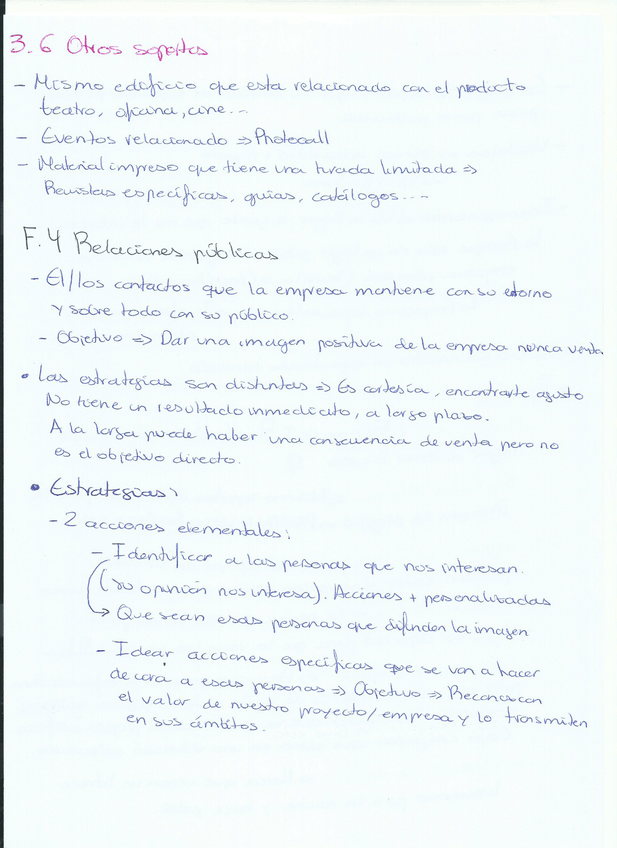 3.6 Otros soportes
- Mismo edificio que esta relacionado con el producto
teatro, oficina, cine...
- Eventos relacionado => Photocall
- Material impreso que tiene una tirada limitada =>
Revistas específicas, guias, catálogos....
F.4 Relaciones públicas
- El/los contactos que la empresa mantiene con su entorno
y sobre todo con su público.
- Objetivo => Dar una imagen positiva de la empresa nunca venta.
• Las estrategias son distintas => Es cortesía, encontrarte agusto
No tiene un resultado inmediato, a largo plazo.
A la larga puede haber una consecuencia de venta pero no
es el objetivo directo.
• Estrategias:
- 2 acciones elementales:
- Identificar a las personas que nos interesan.
(su opinión nos interesa). Acciones + personalizadas
→ Que sean esas personas que difunden la imagen
- Idear acciones específicas que se van a hacer
de cara a esas personas => Objetivo => Reconozcan
el valor de nuestro proyecto/empresa y lo transmiten
en sus ámbitos.